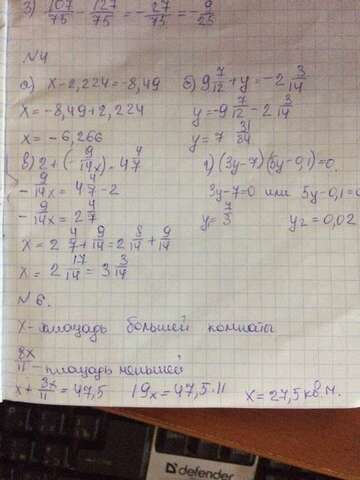 3) 107/75 - 127/75 = -27/75 = -9/25
N4
а) x-2,224=-8,49
x=-8,49+2,224
x=-6,266
б) 9 7/12 + y = -2 3/14
y=-9 7/12 - 2 3/14
y=7 31/84
в) 2+(-9/14x)=4 4/7
-9/14x=4 4/7-2
-9/14x=2 4/7
x=2 4/7+9/14=2 8/14+9/14
x=2 17/14=3 3/14
г) (3y-7)(5y-0,1)=0.
3y-7=0 или 5y-0,1=0
y=7/3 y2=0,02
N6.
x-площадь большей комнаты
8x/11-площадь меньшей
x+3x/11=47,5 19x=47,5·11 x=27,5кв.м.
defender